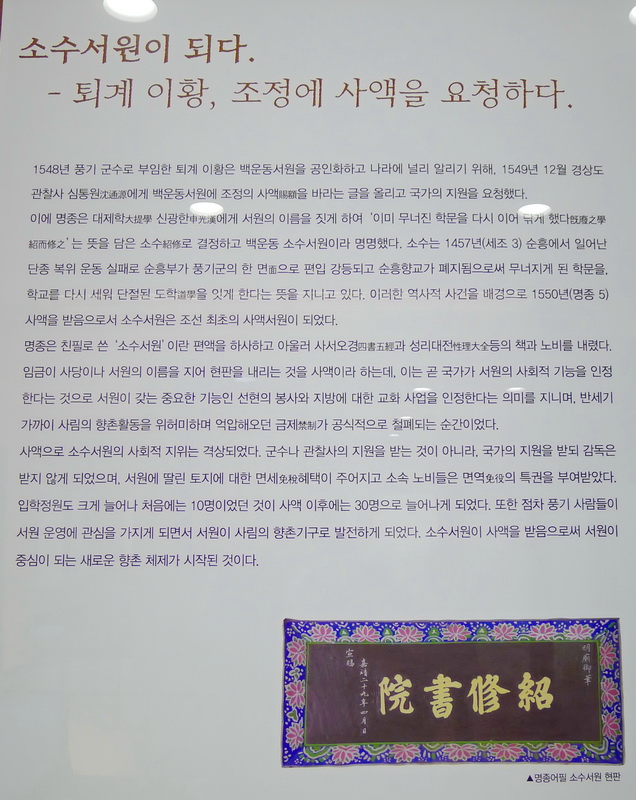 소수서원이 되다.
- 퇴계 이황, 조정에 사액을 요청하다.
1548년 풍기 군수로 부임한 퇴계 이황은 백운동서원을 공인화하고 나라에 널리 알리기 위해, 1549년 12월 경상도
관찰사 심통원沈通源에게 백운동서원에 조정의 사액賜額을 바라는 글을 올리고 국가의 지원을 요청했다.
이에 명종은 대제학大提學 신광한申光漢에게 서원의 이름을 짓게 하여 ‘이미 무너진 학문을 다시 이어 닦게 했다旣廢之學
紹而修之’는 뜻을 담은 소수紹修로 결정하고 백운동 소수서원이라 명명했다. 소수는 1457년(세조 3) 순흥에서 일어난
단종 복위 운동 실패로 순흥부가 풍기군의 한 면面으로 편입 강등되고 순흥향교가 폐지됨으로써 무너지게 된 학문을,
학교를 다시 세워 단절된 도학道學을 잇게 한다는 뜻을 지니고 있다. 이러한 역사적 사건을 배경으로 1550년(명종 5)
사액을 받음으로서 소수서원은 조선 최초의 사액서원이 되었다.
명종은 친필로 쓴 ‘소수서원’이란 편액을 하사하고 아울러 사서오경四書五經과 성리대전性理大全등의 책과 노비를 내렸다.
임금이 사당이나 서원의 이름을 지어 현판을 내리는 것을 사액이라 하는데, 이는 곧 국가가 서원의 사회적 기능을 인정
한다는 것으로 서원이 갖는 중요한 기능인 선현의 봉사와 지방에 대한 교화 사업을 인정한다는 의미를 지니며, 반세기
가까이 사림의 향촌활동을 위허미하며 억압해오던 금제禁制가 공식적으로 철폐되는 순간이었다.
사액으로 소수서원의 사회적 지위는 격상되었다. 군수나 관찰사의 지원을 받는 것이 아니라, 국가의 지원을 받되 감독은
받지 않게 되었으며, 서원에 딸린 토지에 대한 면세免稅혜택이 주어지고 소속 노비들은 면역免役의 특권을 부여받았다.
입학정원도 크게 늘어나 처음에는 10명이었던 것이 사액 이후에는 30명으로 늘어나게 되었다. 또한 점차 풍기 사람들이
서원 운영에 관심을 가지게 되면서 서원이 사림의 향촌기구로 발전하게 되었다. 소수서원이 사액을 받음으로써 서원이
중심이 되는 새로운 향촌 체제가 시작된 것이다.
明廟御筆
紹修書院
嘉靖二十九年四月日
宣賜
▲명종어필 소수서원 현판